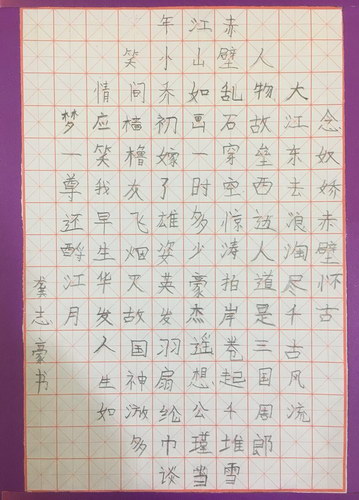 念奴娇赤壁怀古
大江东去浪淘尽千古风流
人物故垒西边人道是三国周郎
赤壁乱石穿空惊涛拍岸卷起千堆雪
江山如画一时多少豪杰遥想公瑾当
年小乔初嫁了雄姿英发羽扇纶巾谈
笑间樯橹灰飞烟灭故国神游多
情应笑我早生华发人生如
梦一尊还酹江月
龚志豪书